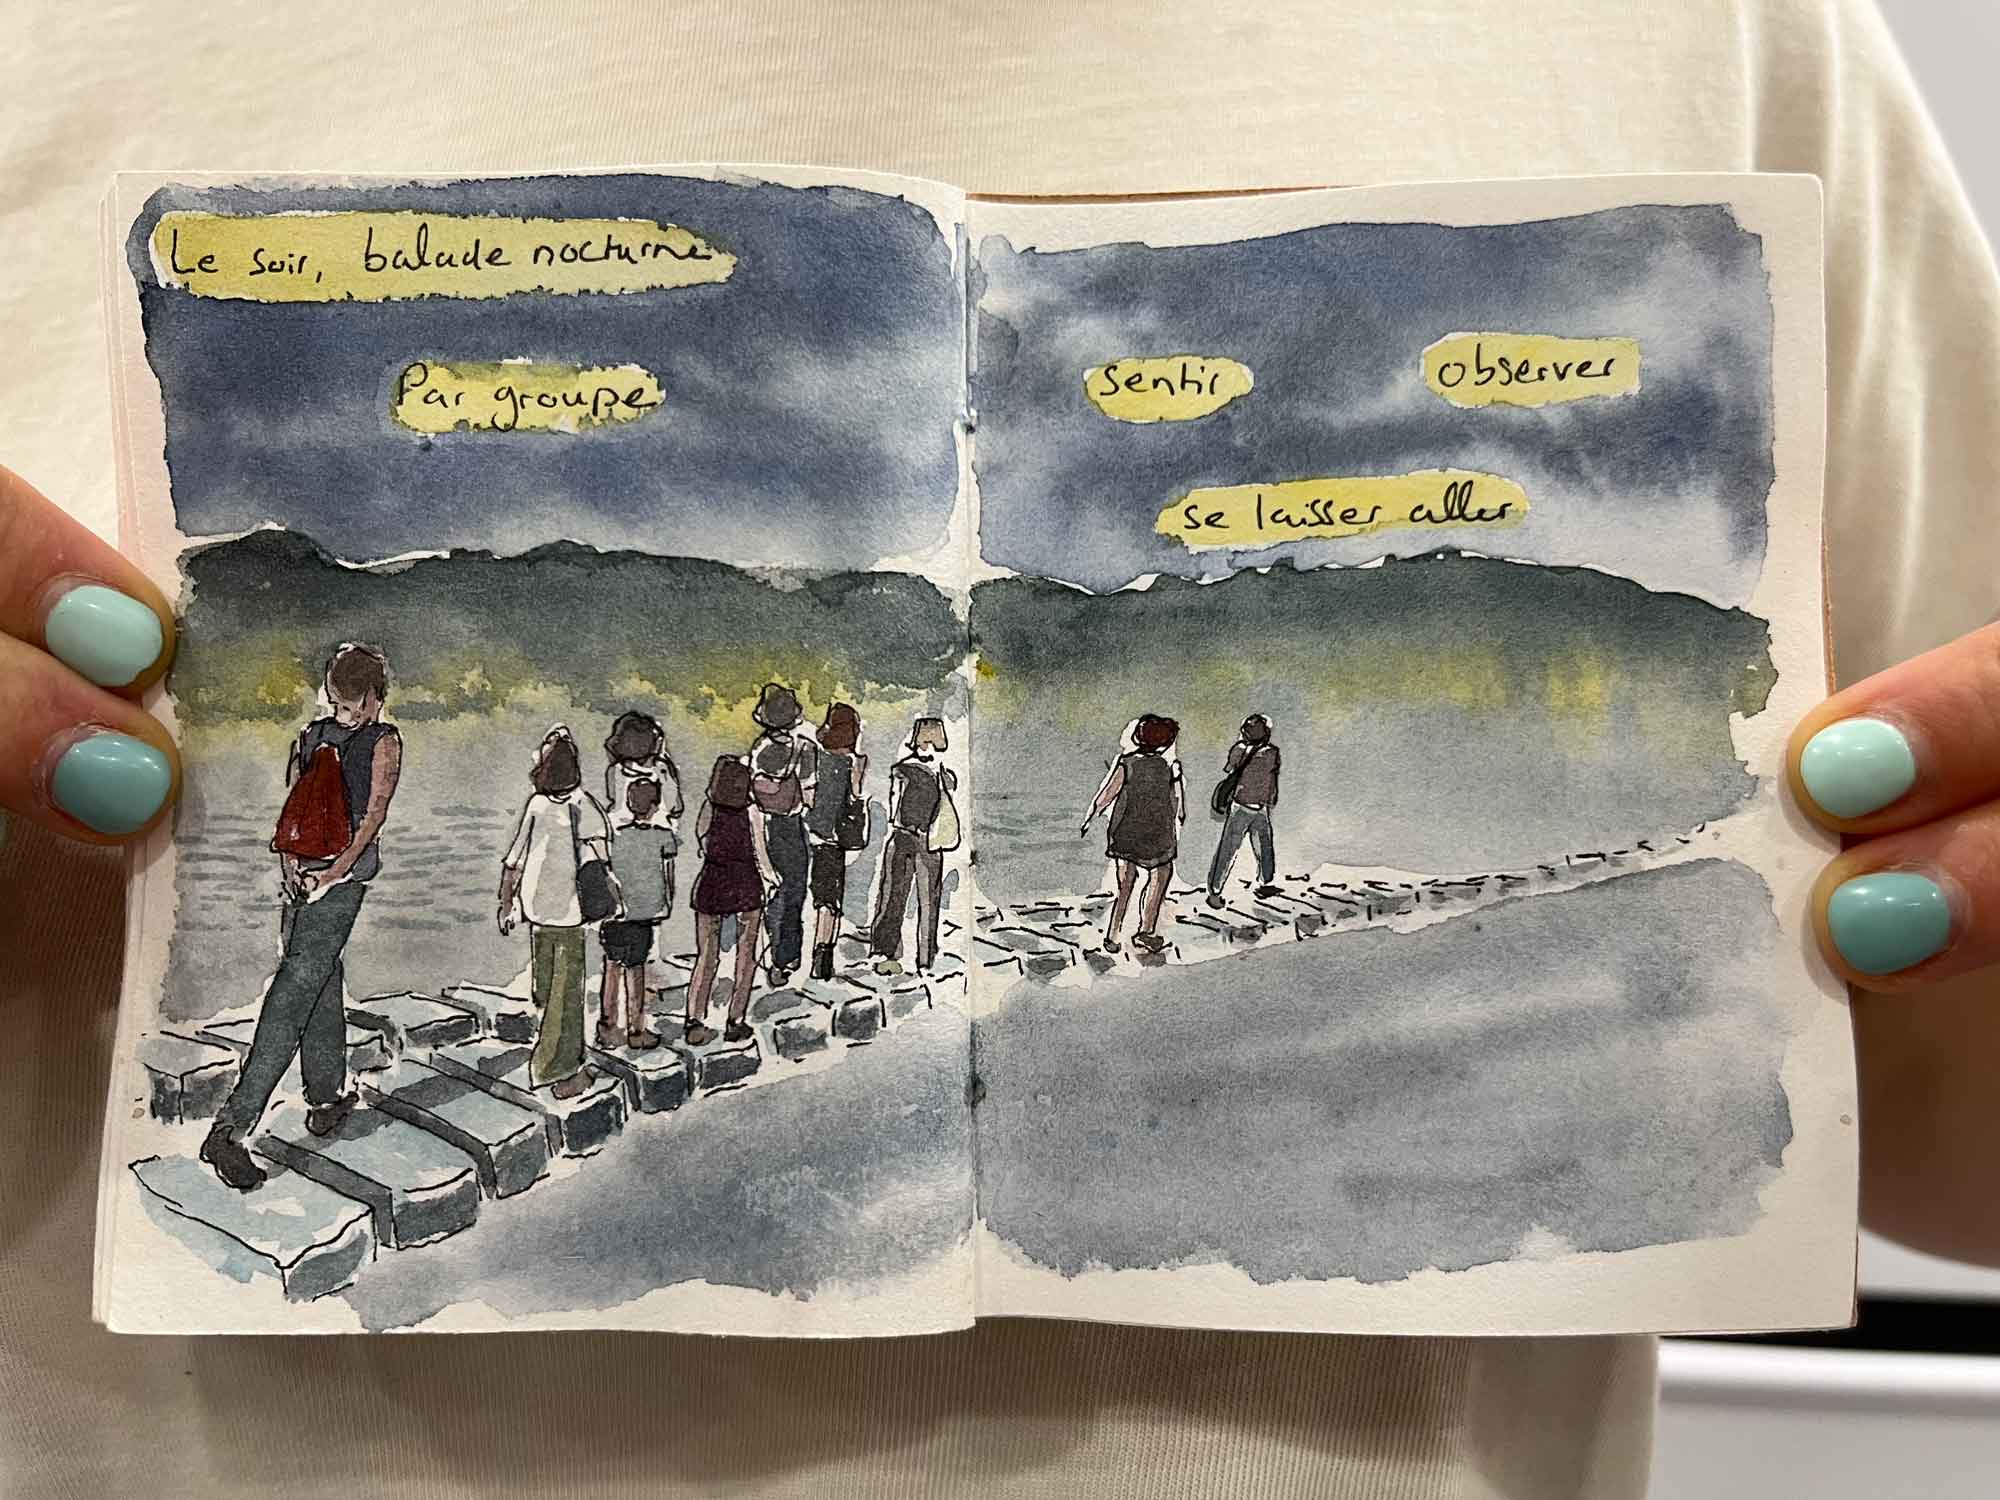 Le soir, balade nocturne
Par groupe
sentir
observer
se laisser aller